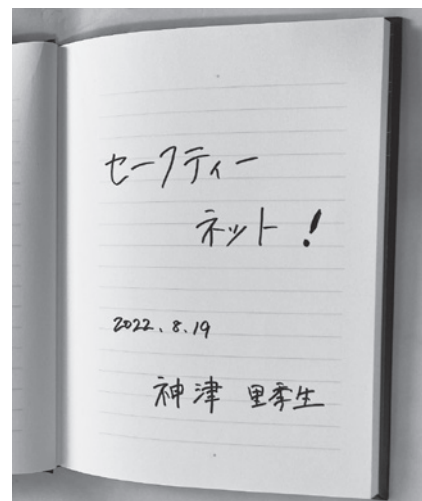 セーフティー
ネット!
2022.8.19
神津 里季生